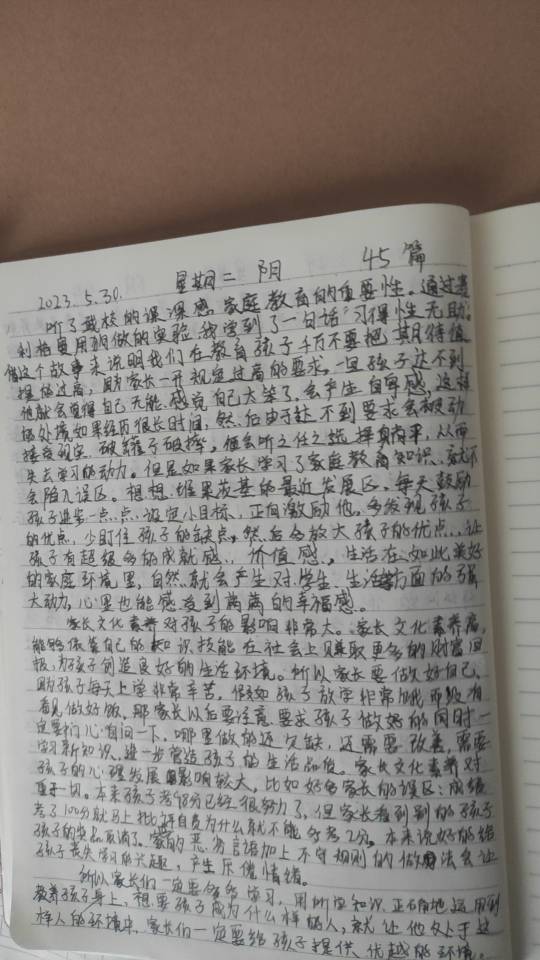 2023.5.30. 星期二 阴 45篇
听了我校的课,深感家庭教育的重要性。通过塞
利格曼用狗做的实验,我学到了一句话"习得性无助"。
借这个故事来说明我们在教育孩子千万不要把期待值
提的过高,因为家长一开规定过高的要求,一旦孩子达不到
他就会觉得自己无能,感觉自己太笨了,会产生自卑感,这样
的处境如果经历很长时间,然后由于达不到要求会被动
接受现实,破罐子破摔,便会听之任之选择躺平,从而
失去学习的动力。但是如果家长学习了家庭教育知识,就不
会陷入误区。想想,维果茨基的最近发展区,每天鼓励
孩子进步一点点,设定小目标,正向激励他,多发现孩子
的优点,少盯住孩子的缺点,然后多放大孩子的优点,让
孩子有超级多的成就感、价值感,生活在如此美好
的家庭环境里,自然就会产生对学生、生活方面的强
大动力,心里也能感受到满满的幸福感。
家长文化素养对孩子的影响非常大。家长文化素养高,
能够依靠自己的知识技能在社会上赚取更多的财富回
报,为孩子创造良好的生活环境。所以家长要做好自己,
因为孩子每天上学非常辛苦,假如孩子放学非常饿而没有
看见做好饭,那家长以后要注意,要求孩子做好的同时一
定要扪心自问一下,哪里做的还欠缺,还需要改善,需要
学习新知识,进一步营造孩子的生活品质。家长文化素养对
孩子的心理发展影响较大,比如好多家长的误区:成绩
重于一切。本来孩子考98分已经很努力了,但家长看到别的孩子
考了100分就马上批评自责为什么就不能多考2分。本来说好的给
孩子的奖品取消了。家长的恶劣言语加上不守规则的做法会让
孩子丧失学习的兴趣,产生厌倦情绪。
所以家长们一定要多多学习,用所学知识正确地运用到
教养孩子身上,想要孩子成为什么样的人,就让他处于这
样人的环境中,家长们一定要给孩子提供优越的环境。